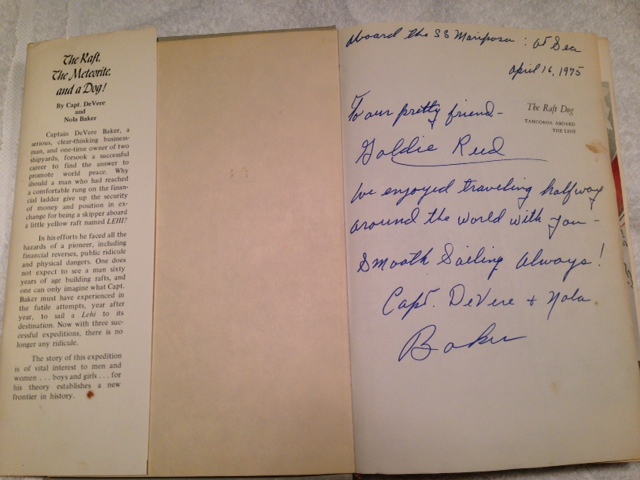 The Raft,
The Meteorite,
and a Dog!
By Capt. DeVere
and
Nola Baker
Captain DeVere Baker, a
serious, clear-thinking business-
man, and one-time owner of two
shipyards, forsook a successful
career to find the answer to
promote world peace. Why
should a man who had reached
a comfortable rung on the finan-
cial ladder give up the security
of money and position in ex-
change for being a skipper aboard
a little yellow raft named LEHI?
In his efforts he faced all the
hazards of a pioneer, including
financial reverses, public ridicule
and physical dangers. One does
not expect to see a man sixty
years of age building rafts, and
one can only imagine what Capt.
Baker must have experienced in
the futile attempts, year after
year, to sail a Lehi to its
destination. Now with three suc-
cessful expeditions, there is no
longer any ridicule.
The story of this expedition
is of vital interest to men and
women . . . boys and girls . . . for
his theory establishes a new
frontier in history.
aboard the SS Mariposa : at Sea
April 16, 1975
The Raft Dog
TANGOROA ABOARD
THE LEHI
To our pretty friend-
Goldie Reed
We enjoyed traveling halfway
around the world with you-
Smooth Sailing Always!
Capt. DeVere + Nola
Baker